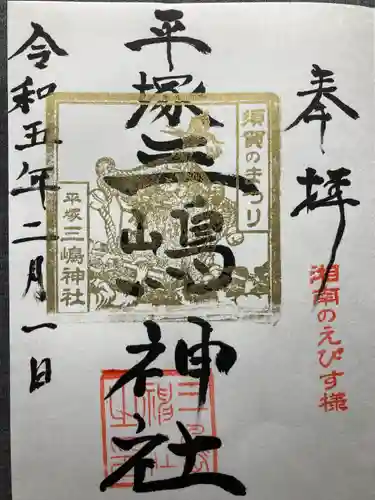 奉拝
湘南のえびす様
須賀のまつり
平塚三嶋神社
平塚三嶋神社
令和五年二月一日